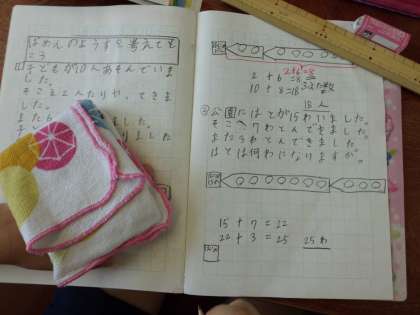 ばめんのようすを考えても
こう
子どもが10人あそんでいま
した。
そこえ2人たりや、てきま
した。
また6
ました。
りました
2+6=8
2 + 6 = 8
10 + 8 = 18
18人
② 公園にはとが15わいました。
そこへ7わとんできました。
また3わとんできました。
はとは何わになりますか。
15 + 7 = 22
22 + 3 = 25
25わ